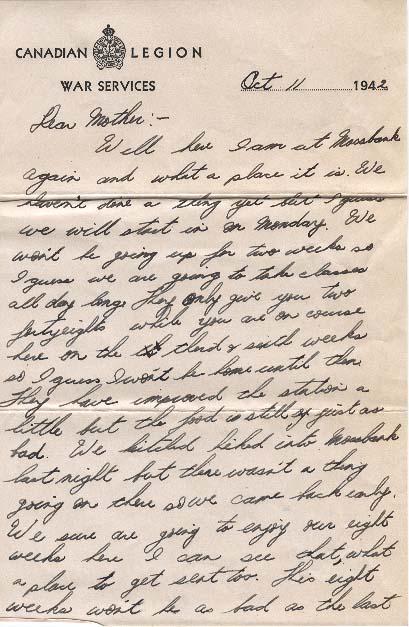 CANADIAN LEGION
WAR SERVICES
Oct 11 1942
Dear Mother:-
Well here I am at Mossbank
again and what a place it is. We
haven't done a thing yet but I guess
we will start in on Monday. We
won't be going up for two weeks so
I guess we are going to take classes
all day long. They only give you two
fortyeights while you are on course
here on the third & sixth weeks
so I guess I won't be home until then.
They have improved the station a
little but the food is still just as
bad. We hitched hiked into Mossbank
last night but there wasn't a thing
going on there so we came back early.
We sure are going to enjoy our eight
weeks here I can see that, what
a place to get sent too. This eight
weeks won't be as bad as the last